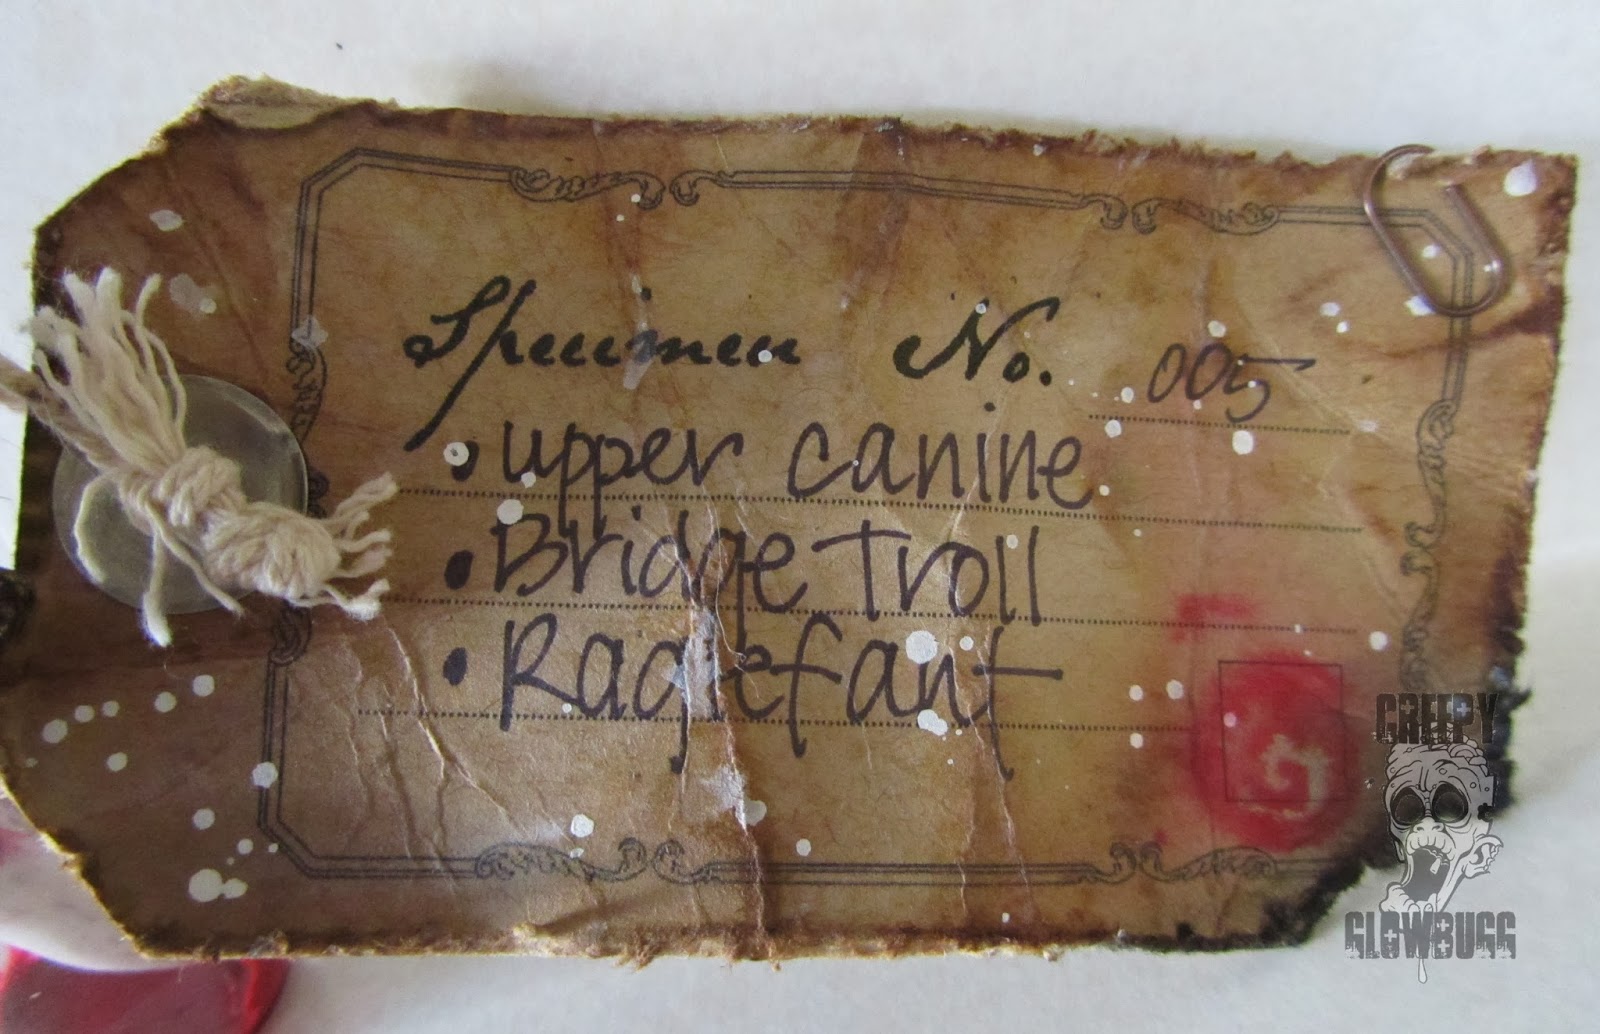 Specimen No. 005
• upper canine
• Bridge Troll
• Raglefant
CREEPY
GLOWBUGG